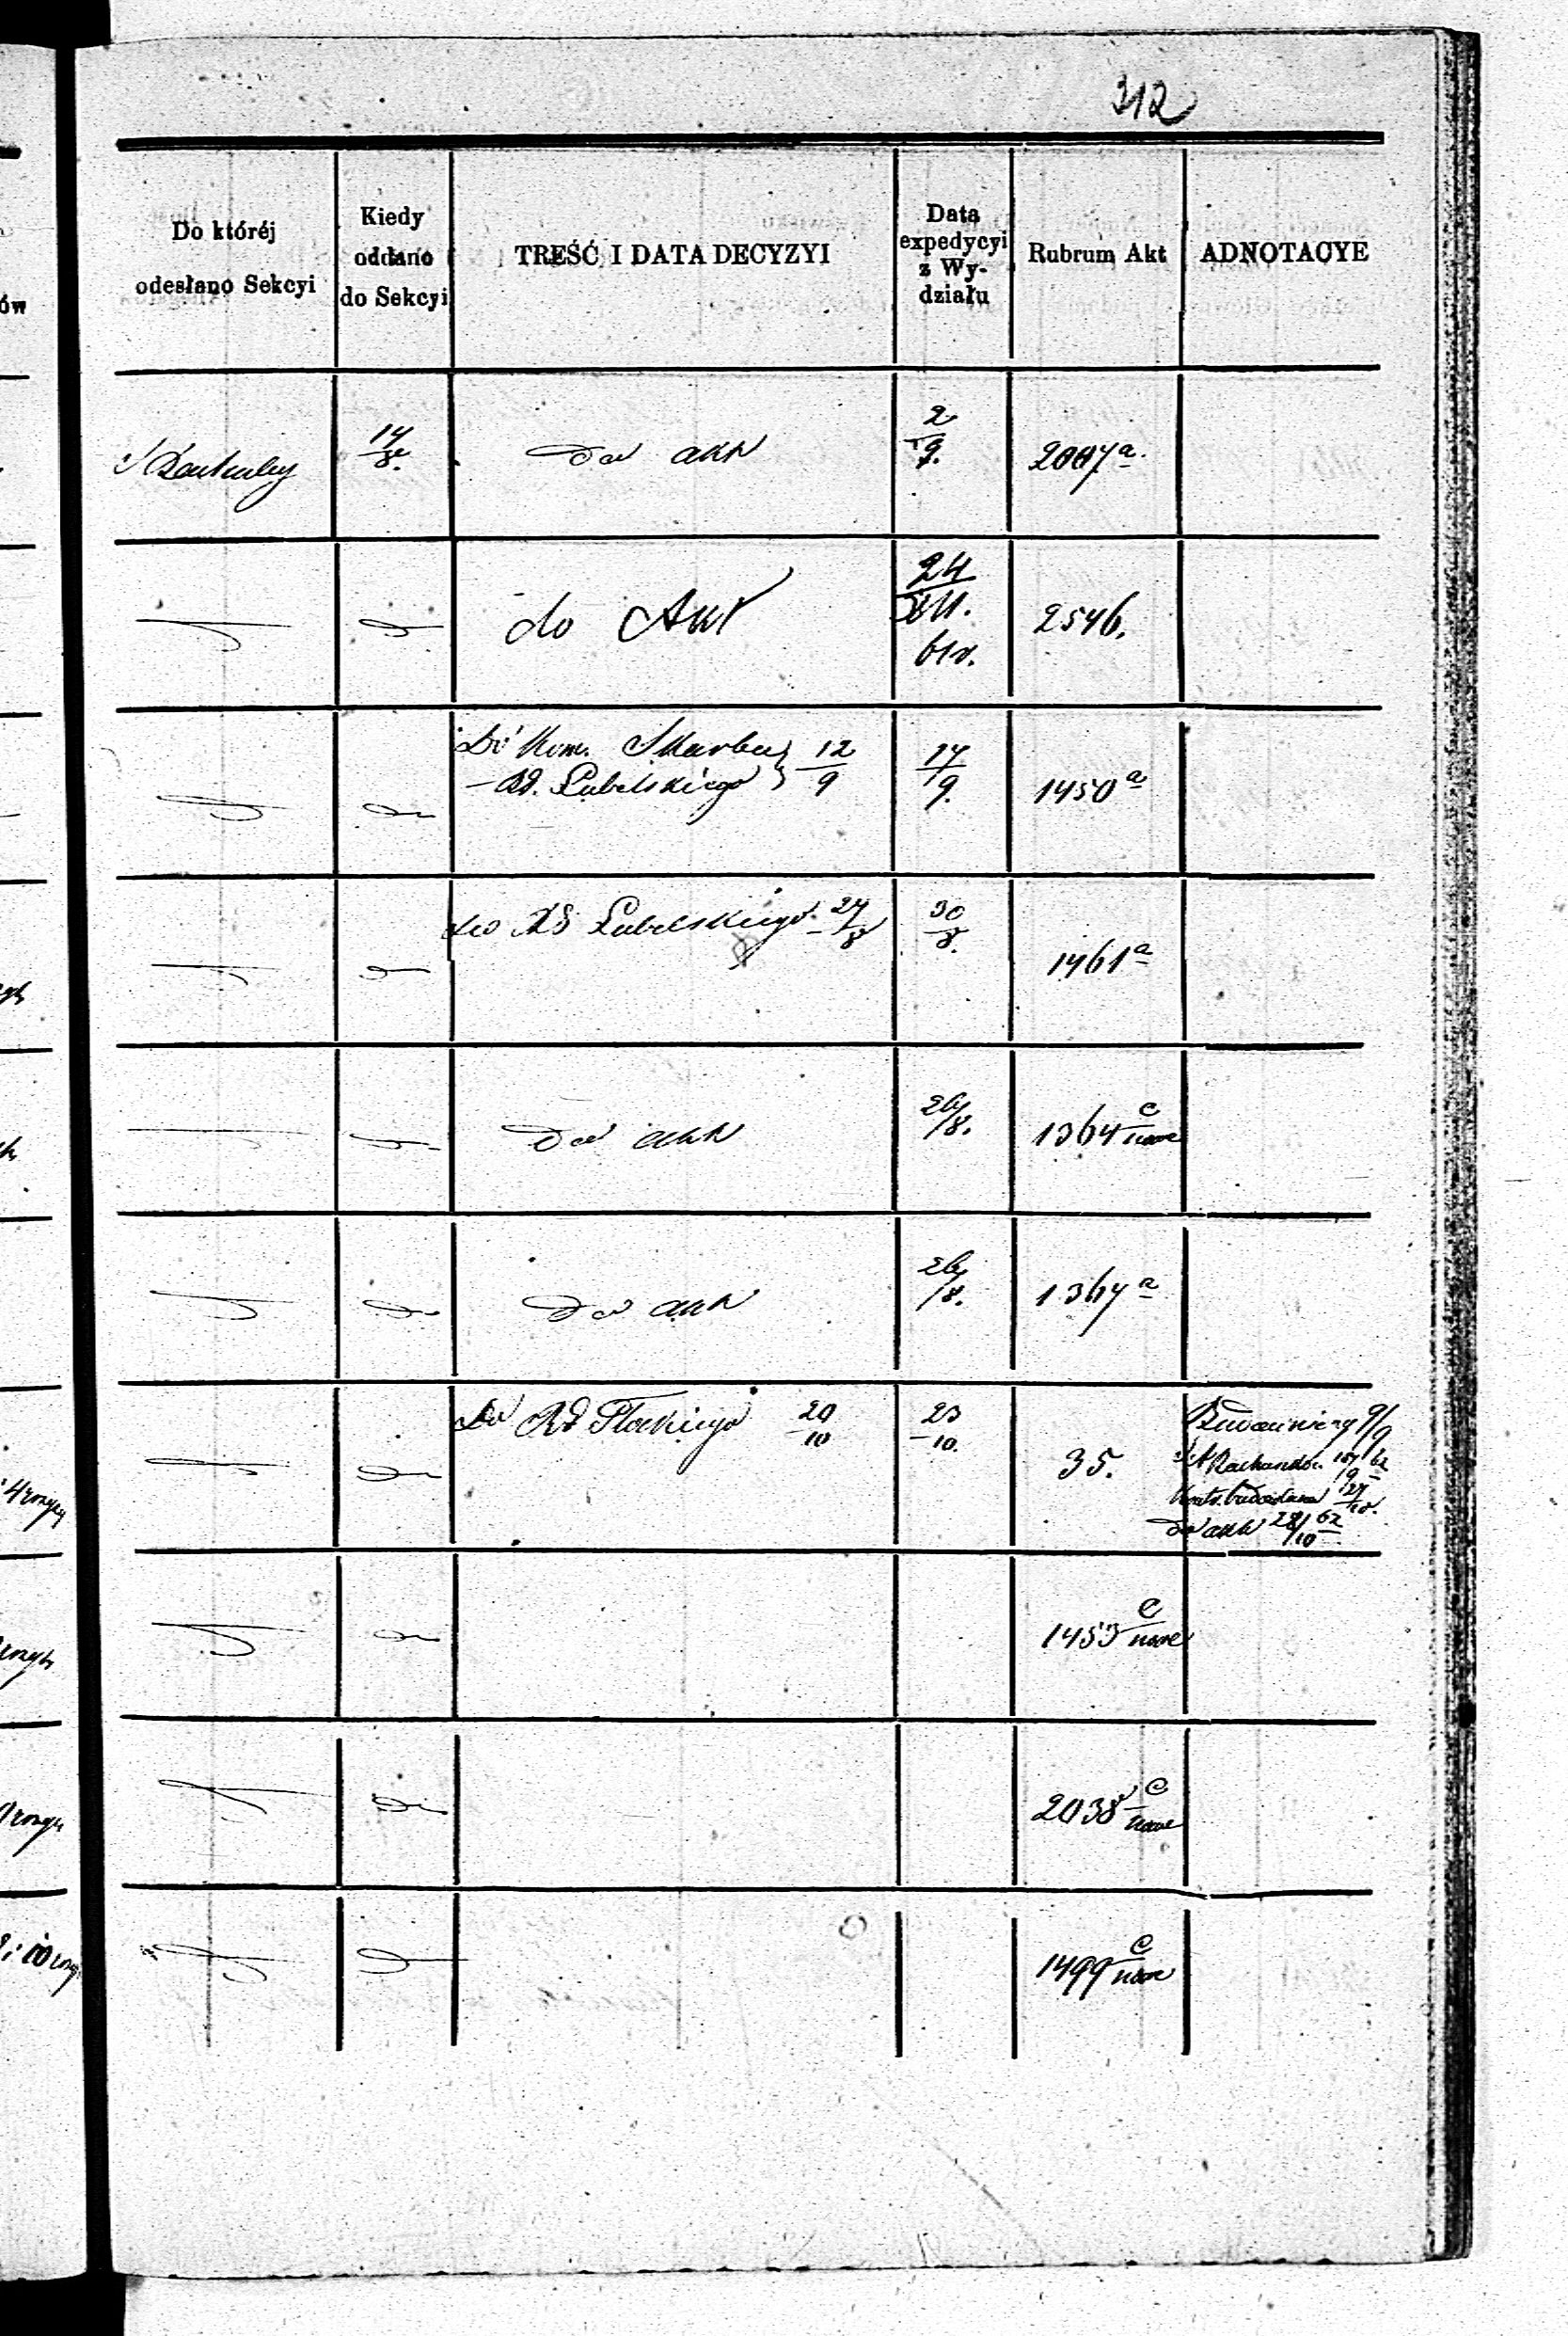 312
Do któréj odesłano Sekcyi
Kiedy oddano do Sekcyi
TREŚĆ I DATA DECYZYI
Data expedycyi z Wy- działu
Rubrum Akt
ADNOTACYE
14/8. do akt 2/9. 2007 a.
do Akt 24/XII. 61 r. 2546.
Do Kom. Skarbu
— Rd. Lubelskiego } 12/9 17/9. 1450 a
do Rd Lubelskiego 27/8 30/8. 1461 a
do akt 26/8. 1364 c/nowe
do akt 26/8. 1364 a
Do Rd Płockiego 20/10 23/10. 35.
9/9
do akt 28/10 62
1453 c/nowe
2038 c/nowe
1499 c/nowe